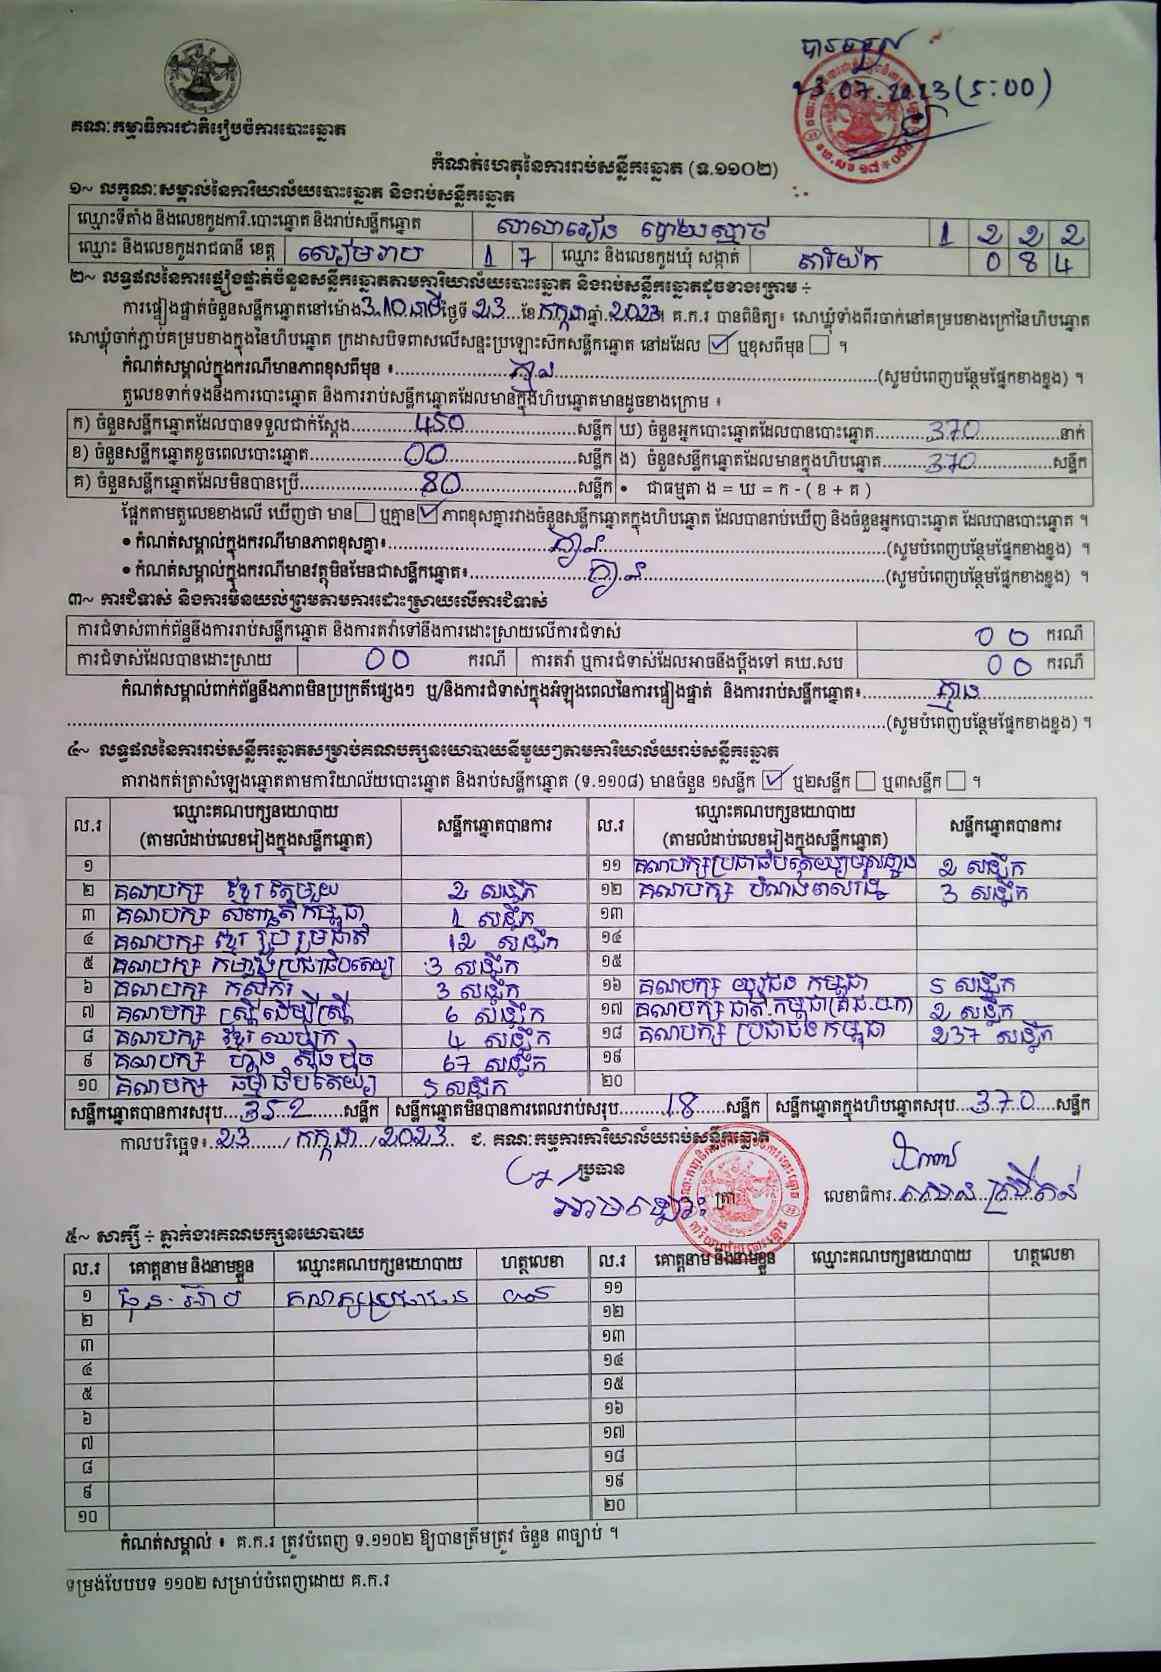 បានទទួល
23.07.2023 (5:00)
គណៈកម្មាធិការជាតិរៀបចំការបោះឆ្នោត
កំណត់ហេតុនៃការរាប់សន្លឹកឆ្នោត (ទ.១១០២)
១~ លក្ខណៈសម្គាល់នៃការិយាល័យបោះឆ្នោត និងរាប់សន្លឹកឆ្នោត
ឈ្មោះទីតាំង និងលេខកូដការិ.បោះឆ្នោត និងរាប់សន្លឹកឆ្នោត សាលារៀន 1 2 2 2
ឈ្មោះ និងលេខកូដរាជធានី ខេត្ត សៀមរាប 1 7 ឈ្មោះ និងលេខកូដឃុំ សង្កាត់ 0 8 4
២~ លទ្ធផលនៃការផ្ទៀងផ្ទាត់ចំនួនសន្លឹកឆ្នោតតាមការិយាល័យបោះឆ្នោត និងរាប់សន្លឹកឆ្នោតដូចខាងក្រោម ÷
ការផ្ទៀងផ្ទាត់ចំនួនសន្លឹកឆ្នោតនៅម៉ោង 3.10 នាទី ថ្ងៃទី 23 ខែ កក្កដា ឆ្នាំ 2023។ គ.ក.រ បានពិនិត្យ៖ សោឃ្លុំទាំងពីរចាក់នៅគម្របខាងក្រៅនៃហិបឆ្នោត
សោឃ្លុំចាក់ភ្ជាប់គម្របខាងក្នុងនៃហិបឆ្នោត ក្រដាសបិទពាសលើសន្ទះប្រឡោះសិកសន្លឹកឆ្នោត នៅដដែល ☑ ឬខុសពីមុន ☐ ។
កំណត់សម្គាល់ក្នុងករណីមានភាពខុសពីមុន ៖ គ្មាន (សូមបំពេញបន្ថែមផ្នែកខាងខ្នង) ។
តួលេខទាក់ទងនឹងការបោះឆ្នោត និងការរាប់សន្លឹកឆ្នោតដែលមានក្នុងហិបឆ្នោតមានដូចខាងក្រោម ៖
ក) ចំនួនសន្លឹកឆ្នោតដែលបានទទួលជាក់ស្តែង 450 សន្លឹក ឃ) ចំនួនអ្នកបោះឆ្នោតដែលបានបោះឆ្នោត 370 នាក់
ខ) ចំនួនសន្លឹកឆ្នោតខូចពេលបោះឆ្នោត 00 សន្លឹក ង) ចំនួនសន្លឹកឆ្នោតដែលមានក្នុងហិបឆ្នោត 370 សន្លឹក
គ) ចំនួនសន្លឹកឆ្នោតដែលមិនបានប្រើ 80 សន្លឹក • ជាធម្មតា ង = ឃ = ក - ( ខ + គ )
ផ្អែកតាមតួលេខខាងលើ ឃើញថា មាន ☐ ឬគ្មាន ☑ ភាពខុសគ្នារវាងចំនួនសន្លឹកឆ្នោតក្នុងហិបឆ្នោត ដែលបានរាប់ឃើញ និងចំនួនអ្នកបោះឆ្នោត ដែលបានបោះឆ្នោត ។
• កំណត់សម្គាល់ក្នុងករណីមានភាពខុសគ្នា៖ គ្មាន (សូមបំពេញបន្ថែមផ្នែកខាងខ្នង) ។
• កំណត់សម្គាល់ក្នុងករណីមានវត្ថុមិនមែនជាសន្លឹកឆ្នោត៖ គ្មាន (សូមបំពេញបន្ថែមផ្នែកខាងខ្នង) ។
៣~ ការជំទាស់ និងការមិនយល់ព្រមតាមការដោះស្រាយលើការជំទាស់
ការជំទាស់ពាក់ព័ន្ធនឹងការរាប់សន្លឹកឆ្នោត និងការតវ៉ាទៅនឹងការដោះស្រាយលើការជំទាស់ 00 ករណី
ការជំទាស់ដែលបានដោះស្រាយ 00 ករណី ការតវ៉ា ឬការជំទាស់ដែលអាចនឹងប្តឹងទៅ គឃ.សប 00 ករណី
កំណត់សម្គាល់ពាក់ព័ន្ធនឹងភាពមិនប្រក្រតីផ្សេងៗ ឬ/និងការជំទាស់ក្នុងអំឡុងពេលនៃការផ្ទៀងផ្ទាត់ និងការរាប់សន្លឹកឆ្នោត៖ គ្មាន
(សូមបំពេញបន្ថែមផ្នែកខាងខ្នង) ។
៤~ លទ្ធផលនៃការរាប់សន្លឹកឆ្នោតសម្រាប់គណបក្សនយោបាយនីមួយៗតាមការិយាល័យរាប់សន្លឹកឆ្នោត
តារាងកត់ត្រាសំឡេងឆ្នោតតាមការិយាល័យបោះឆ្នោត និងរាប់សន្លឹកឆ្នោត (ទ.១១០៨) មានចំនួន ១សន្លឹក ☑ ឬ២សន្លឹក ☐ ឬ៣សន្លឹក ☐ ។
ល.រ ឈ្មោះគណបក្សនយោបាយ (តាមលំដាប់លេខរៀងក្នុងសន្លឹកឆ្នោត) សន្លឹកឆ្នោតបានការ ល.រ ឈ្មោះគណបក្សនយោបាយ (តាមលំដាប់លេខរៀងក្នុងសន្លឹកឆ្នោត) សន្លឹកឆ្នោតបានការ
១ ១១ គណបក្សប្រជាធិបតេយ្យមូលដ្ឋាន 2 សន្លឹក
២ គណបក្ស ខ្មែរតែមួយ 2 សន្លឹក ១២ គណបក្ស 3 សន្លឹក
៣ គណបក្ស សញ្ជាតិកម្ពុជា 1 សន្លឹក ១៣
៤ គណបក្ស ខ្មែររួបរួមជាតិ 12 សន្លឹក ១៤
៥ គណបក្ស កម្លាំងប្រជាធិបតេយ្យ 3 សន្លឹក ១៥
៦ គណបក្ស កសិករ 3 សន្លឹក ១៦ គណបក្ស យុវជន កម្ពុជា 5 សន្លឹក
៧ គណបក្ស ស្ត្រីដើម្បីស្ត្រី 6 សន្លឹក ១៧ គណបក្ស ជាតិ.កម្ពុជា 2 សន្លឹក
៨ គណបក្ស ខ្មែរឈប់ក្រ 4 សន្លឹក ១៨ គណបក្ស ប្រជាជនកម្ពុជា 237 សន្លឹក
៩ គណបក្ស ហ្វ៊ុនស៊ិនប៉ិច 67 សន្លឹក ១៩
១០ គណបក្ស ធម្មាធិបតេយ្យ 5 សន្លឹក ២០
សន្លឹកឆ្នោតបានការសរុប 352 សន្លឹក សន្លឹកឆ្នោតមិនបានការពេលរាប់សរុប 18 សន្លឹក សន្លឹកឆ្នោតក្នុងហិបឆ្នោតសរុប 370 សន្លឹក
កាលបរិច្ឆេទ៖ 23 / កក្កដា / 2023 ជ. គណៈកម្មការការិយាល័យរាប់សន្លឹកឆ្នោត
ប្រធាន
ត្រា លេខាធិការ
៥~ សាក្សី ÷ ភ្នាក់ងារគណបក្សនយោបាយ
ល.រ គោត្តនាម និងនាមខ្លួន ឈ្មោះគណបក្សនយោបាយ ហត្ថលេខា ល.រ គោត្តនាម និងនាមខ្លួន ឈ្មោះគណបក្សនយោបាយ ហត្ថលេខា
១ គណបក្សប្រជាជន ១១
២ ១២
៣ ១៣
៤ ១៤
៥ ១៥
៦ ១៦
៧ ១៧
៨ ១៨
៩ ១៩
១០ ២០
កំណត់សម្គាល់ ៖ គ.ក.រ ត្រូវបំពេញ ទ.១១០២ ឱ្យបានត្រឹមត្រូវ ចំនួន ៣ច្បាប់ ។
ទម្រង់បែបបទ ១១០២ សម្រាប់បំពេញដោយ គ.ក.រ